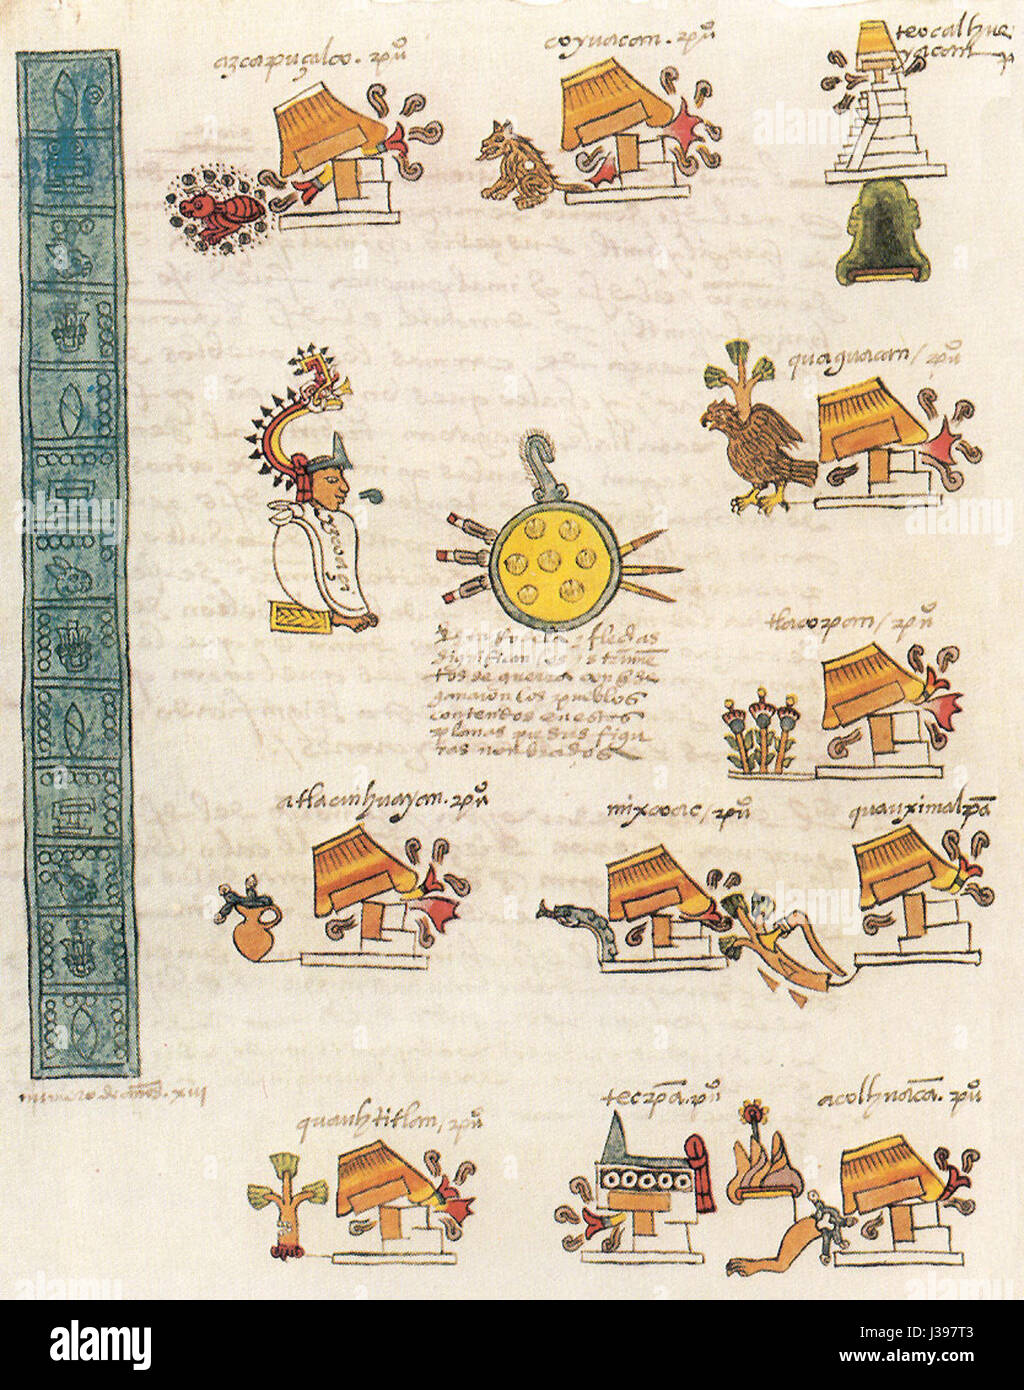 azcapuçalco. puº
coyuacan. puº
teocalhue
yacan
puº
quaguacan / puº
ytzcoaçi
Esta rodela y flechas
significan los instrumen
tos de guerra con q se
ganaron los pueblos
contenidos en estas
planas que sus figu
ras nonbrados
tlacopan / puº
atlacuihuayan. puº
mixcoac / puº
quauximalpā
numero de años. xiii
quauhtitlan / puº
tecpā. puº
acolhuacā. puº
alamy
alamy
Image ID: J397T3
www.alamy.com